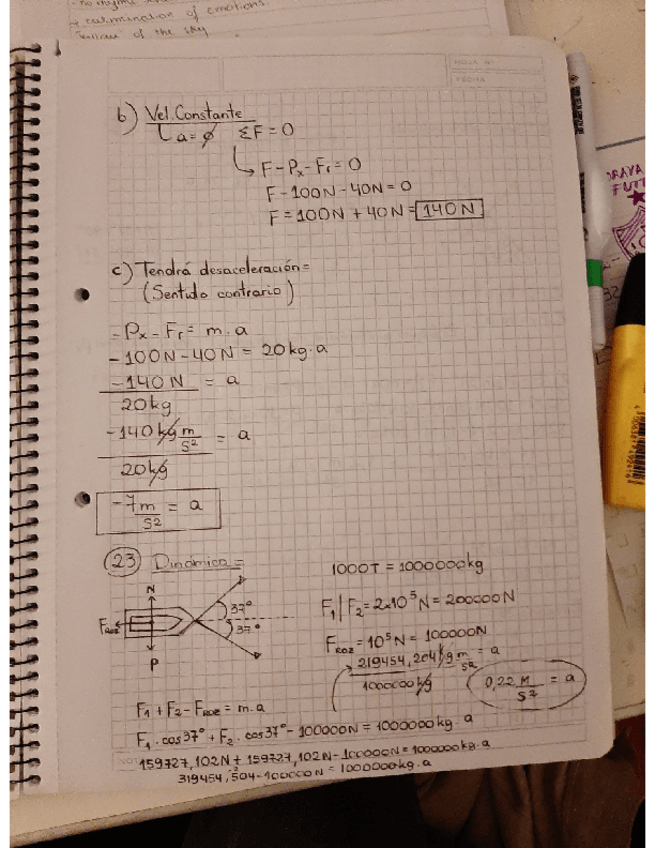 culmination of emotions.
of the sky
HOJA Nº
FECHA
b) Vel. Constante
a=∅ ΣF=0
F-Px-Fr=0
F-100N-40N=0
F=100N+40N=140N
c) Tendrá desaceleración=
(Sentido contrario)
-Px-Fr= m.a
-100N-40N = 20kg.a
-140N = a
20kg
-140 kg m = a
s²
20kg
-7m = a
s²
23 Dinámica=
1000T = 1000000kg
N
37°
37°
FROZ
P
F1/F2=2x10⁵N=200000N
FROZ=10⁵N=100000N
219454,204kg m = a
s²
1000000kg
0,22 M = a
s²
F1+F2-FROZ=m.a
F1.cos37°+F2.cos37°-100000N=1000000kg.a
159727,102N+159727,102N-100000N=1000000kg.a
319454,504-100000N=1000000kg.a